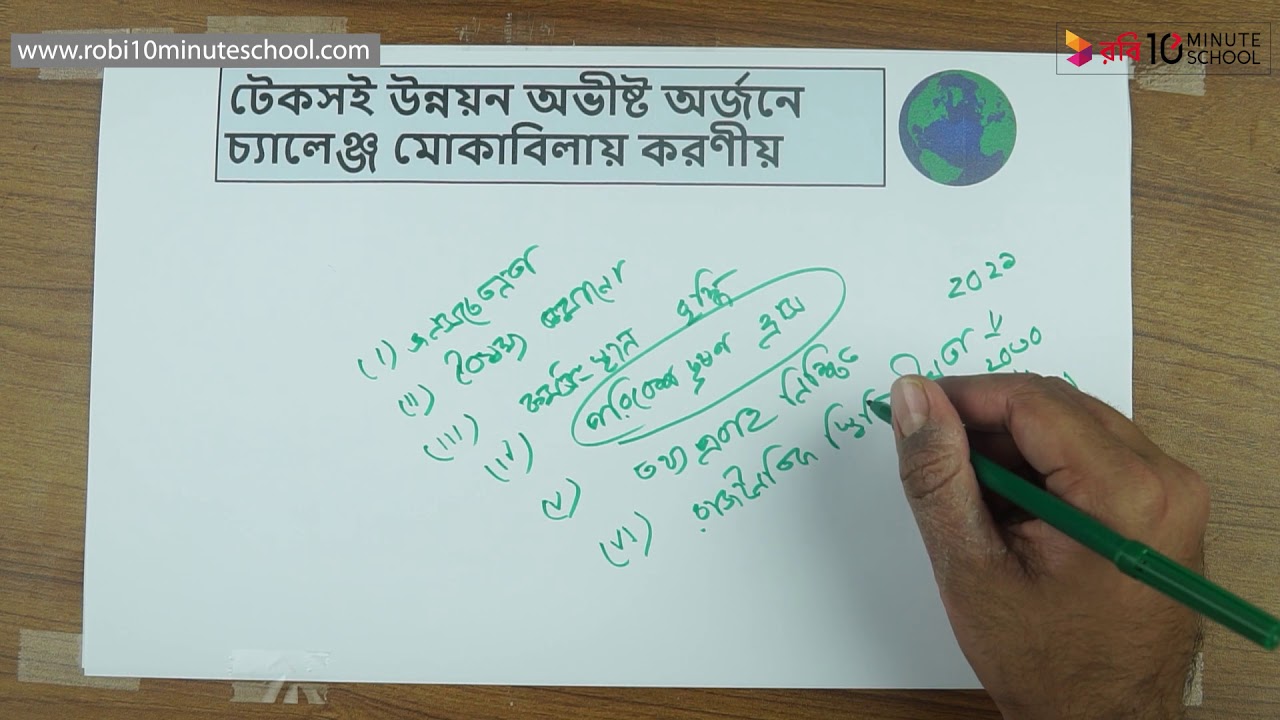 www.robi10minuteschool.com
রবি 10 MINUTE SCHOOL
টেকসই উন্নয়ন অভীষ্ট অর্জনে
চ্যালেঞ্জ মোকাবিলায় করণীয়
(I) জনসচেতনতা
(II) বৈষম্য কমানো
(III) কর্মসংস্থান বৃদ্ধি
(IV) পরিবেশ দূষণ হ্রাস
(V) তথ্য প্রবাহ নিশ্চিত
(VI) রাজনৈতিক স্থিতিশীলতা
2021
২০৩০